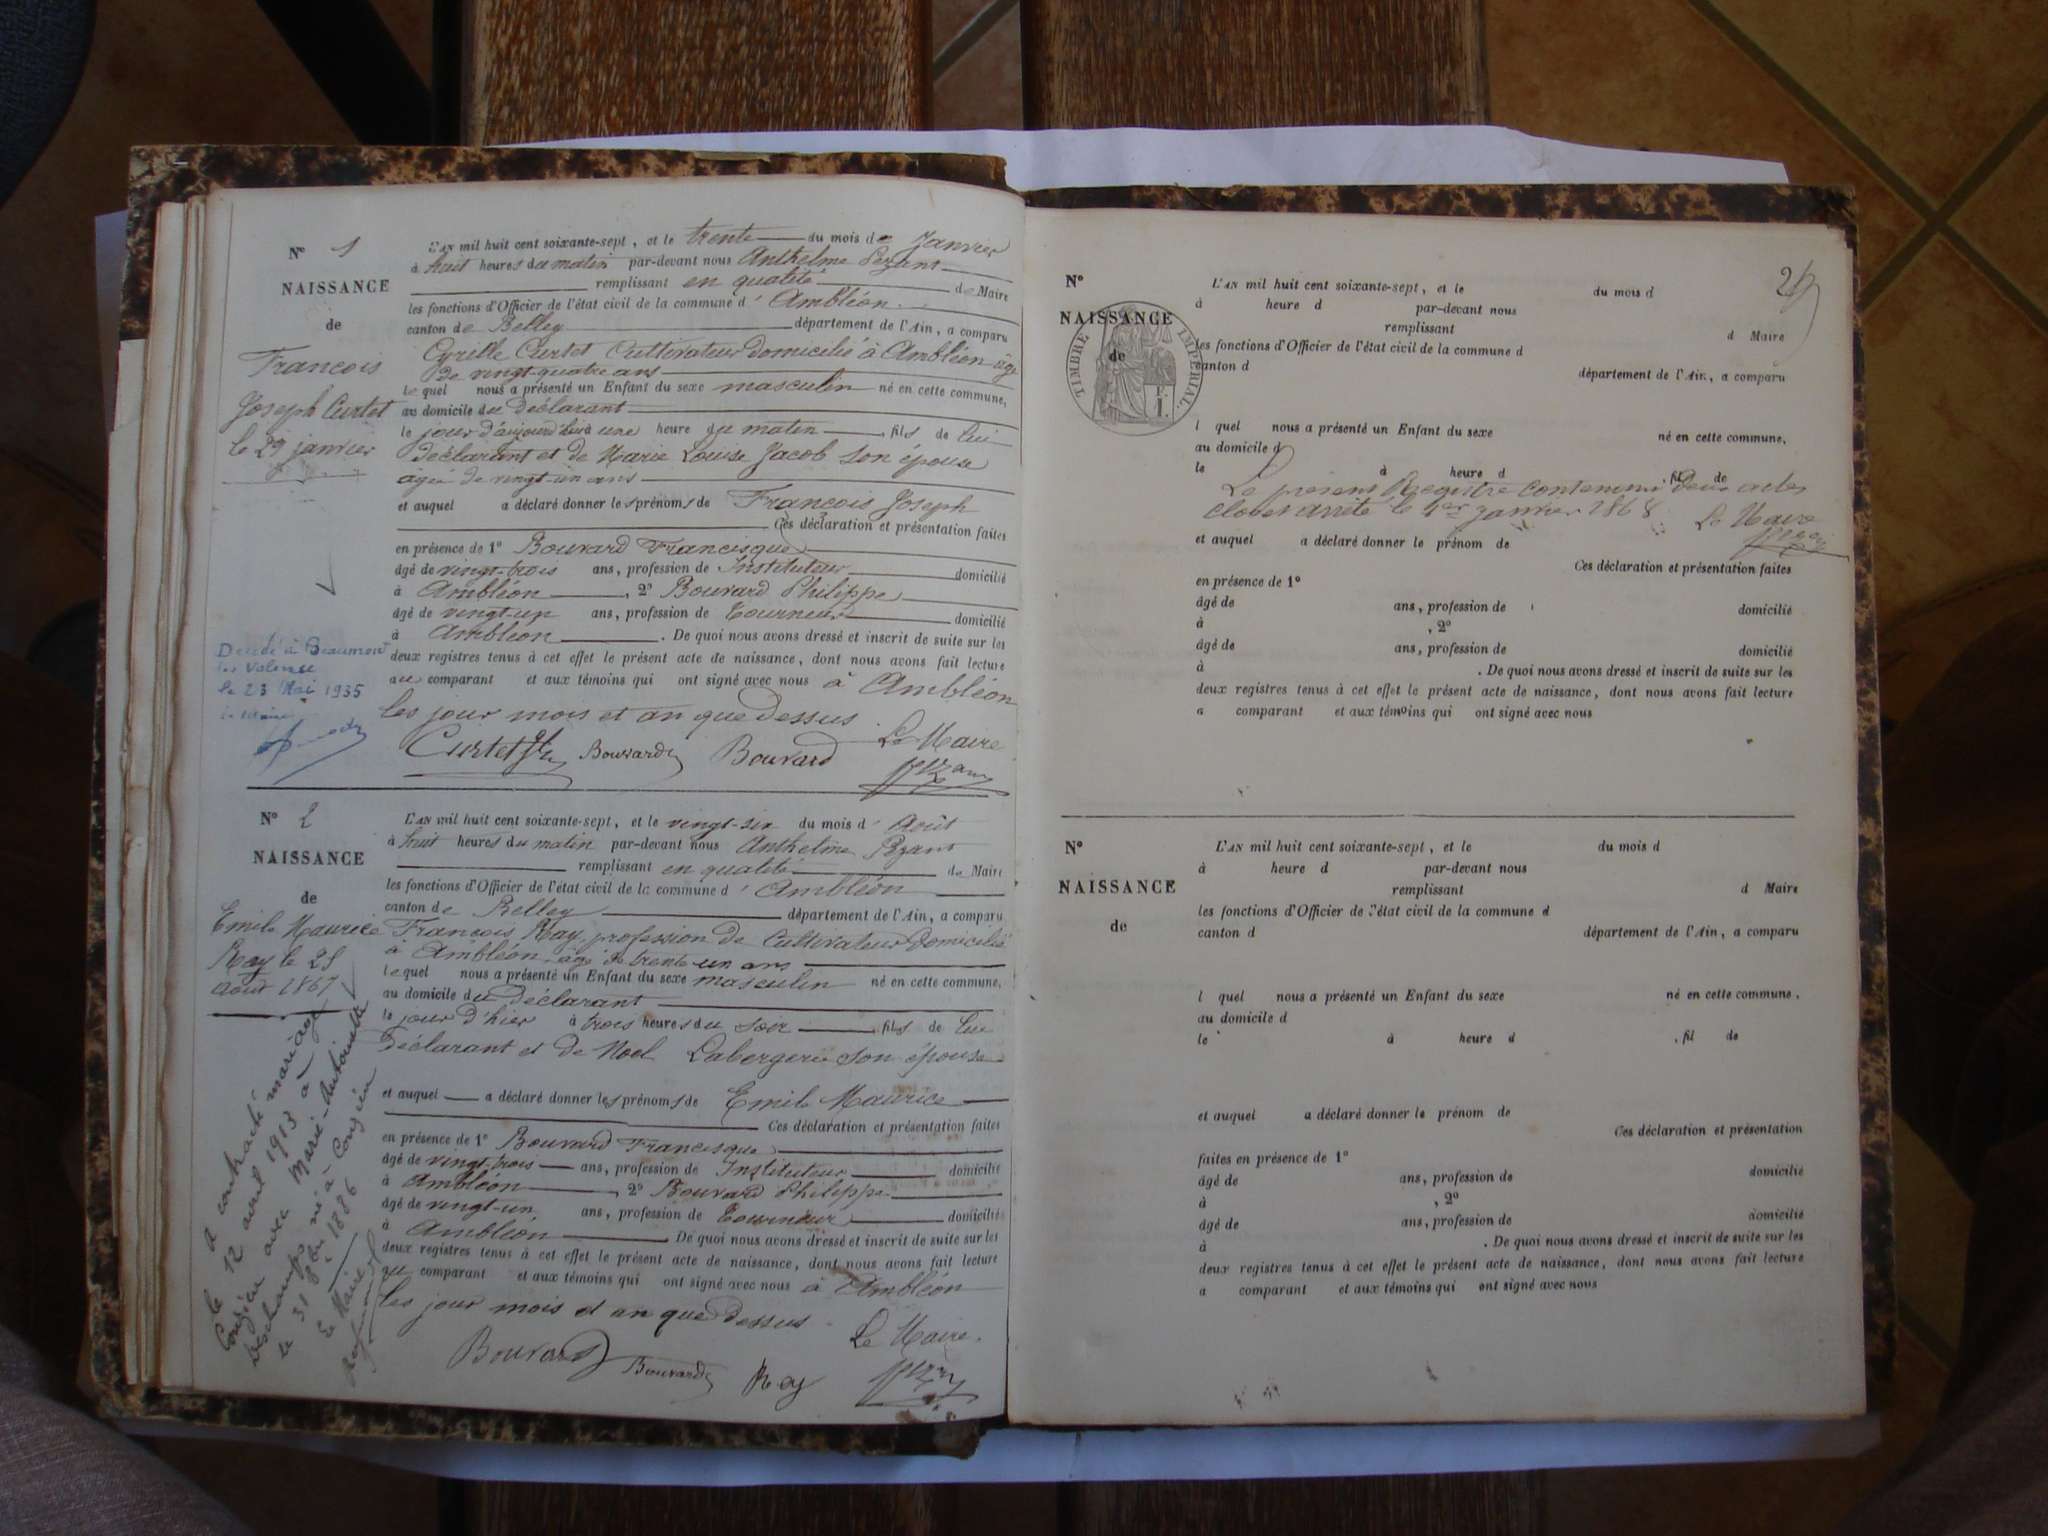 Nº 1
NAISSANCE
de
François
Joseph Curtet
le 29 janvier
L'AN mil huit cent soixante-sept, et le trente du mois de Janvier
à huit heures du matin par-devant nous Anthelme Pezant
remplissant en qualité de Maire
les fonctions d'Officier de l'état civil de la commune d' Ambléon
canton de Belley département de l'Ain, a comparu
Cyrille Curtet Cultivateur domicilié à Ambléon âgé
de vingt-quatre ans
lequel nous a présenté un Enfant du sexe masculin né en cette commune,
au domicile du déclarant
le jour d'aujourd'hui à une heure du matin, fils de lui
déclarant et de Marie Louise Jacob son épouse
âgée de vingt-un ans
et auquel a déclaré donner les prénoms de François Joseph
Ces déclaration et présentation faites
en présence de 1º Bouvard Francisque
âgé de vingt-trois ans, profession de Instituteur domicilié
à Ambléon, 2º Bouvard Philippe
âgé de vingt-un ans, profession de Tourneur domicilié
à Ambléon. De quoi nous avons dressé et inscrit de suite sur les
deux registres tenus à cet effet le présent acte de naissance, dont nous avons fait lecture
au comparant et aux témoins qui ont signé avec nous à Ambléon
les jour mois et an que dessus
Le Maire
Curtet Bouvard Bouvard Pezant
Décédé à Beaumont
les Valence
le 23 Mai 1935
Nº 2
NAISSANCE
de
Emile Maurice
Ray le 25
août 1867
L'AN mil huit cent soixante-sept, et le vingt-six du mois d' Août
à huit heures du matin par-devant nous Anthelme Pezant
remplissant en qualité de Maire
les fonctions d'Officier de l'état civil de la commune d' Ambléon
canton de Belley département de l'Ain, a comparu
François Ray, profession de Cultivateur domicilié
à Ambléon, âgé de trente un ans
lequel nous a présenté un Enfant du sexe masculin né en cette commune,
au domicile du déclarant
le jour d'hier à trois heures du soir, fils de lui
déclarant et de Noel Labergerie son épouse
et auquel a déclaré donner les prénoms de Emile Maurice
Ces déclaration et présentation faites
en présence de 1º Bouvard Francisque
âgé de vingt-trois ans, profession de Instituteur domicilié
à Ambléon, 2º Bouvard Philippe
âgé de vingt-un ans, profession de Tourneur domicilié
à Ambléon. De quoi nous avons dressé et inscrit de suite sur les
deux registres tenus à cet effet le présent acte de naissance, dont nous avons fait lecture
au comparant et aux témoins qui ont signé avec nous à Ambléon
les jour mois et an que dessus
Le Maire.
Bouvard Bouvard Ray Pezant
a contracté mariage
le 12 avril 1913 à
Conzieu avec Marie-Antoinette
Deschamps née à Conzieu
le 31 8bre 1886
Le Maire
2
Nº
NAISSANCE
de
TIMBRE IMPÉRIAL.
L'AN mil huit cent soixante-sept, et le du mois d
à heure d par-devant nous
remplissant d Maire
les fonctions d'Officier de l'état civil de la commune d
canton d département de l'Ain, a comparu
l quel nous a présenté un Enfant du sexe né en cette commune,
au domicile d
le à heure d , fil de
Le présent Registre contenant deux actes
clos et arrêté le 1er Janvier 1868 Le Maire
Pezant
et auquel a déclaré donner le prénom de
Ces déclaration et présentation faites
en présence de 1º
âgé de ans, profession de domicilié
à , 2º
âgé de ans, profession de domicilié
à . De quoi nous avons dressé et inscrit de suite sur les
deux registres tenus à cet effet le présent acte de naissance, dont nous avons fait lecture
a comparant et aux témoins qui ont signé avec nous
Nº
NAISSANCE
de
L'AN mil huit cent soixante-sept, et le du mois d
à heure d par-devant nous
remplissant d Maire
les fonctions d'Officier de l'état civil de la commune d
canton d département de l'Ain, a comparu
l quel nous a présenté un Enfant du sexe né en cette commune,
au domicile d
le à heure d , fil de
et auquel a déclaré donner le prénom de
Ces déclaration et présentation
faites en présence de 1º
âgé de ans, profession de domicilié
à , 2º
âgé de ans, profession de domicilié
à . De quoi nous avons dressé et inscrit de suite sur les
deux registres tenus à cet effet le présent acte de naissance, dont nous avons fait lecture
a comparant et aux témoins qui ont signé avec nous